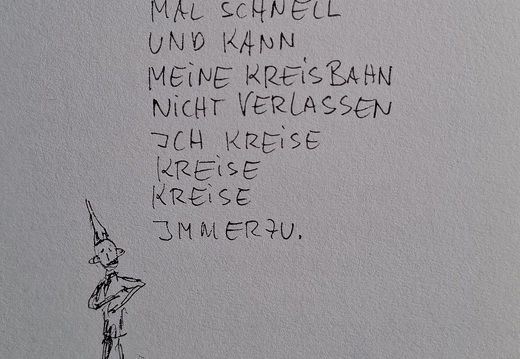 MAL SCHNELL
UND KANN
MEINE KREISBAHN
NICHT VERLASSEN
ICH KREISE
KREISE
KREISE
IMMERZU.